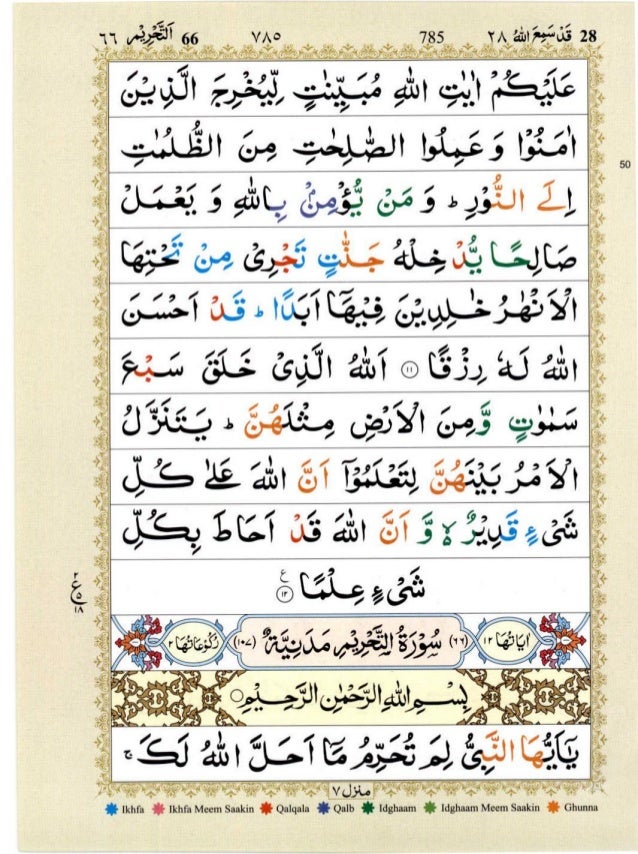 28 قَدْ سَمِعَ اللهُ ٢٨ 785 ٧٨٥ 66 اَلتَّحْرِيْم ٦٦
عَلَيْكُمْ اٰيٰتِ اللهِ مُبَيِّنٰتٍ لِّيُخْرِجَ الَّذِيْنَ
اٰمَنُوْا وَ عَمِلُوا الصّٰلِحٰتِ مِنَ الظُّلُمٰتِ
50
اِلَى النُّوْرِ ؕ وَ مَنْ يُّؤْمِنْۢ بِاللهِ وَ يَعْمَلْ
صَالِحًا يُّدْخِلْهُ جَنّٰتٍ تَجْرِىْ مِنْ تَحْتِهَا
الْاَنْهٰرُ خٰلِدِيْنَ فِيْهَاۤ اَبَدًا ؕ قَدْ اَحْسَنَ
اللهُ لَهٗ رِزْقًا ۝۱۱ اَللهُ الَّذِىْ خَلَقَ سَبْعَ
سَمٰوٰتٍ وَّمِنَ الْاَرْضِ مِثْلَهُنَّ ؕ يَتَنَزَّلُ
الْاَمْرُ بَيْنَهُنَّ لِتَعْلَمُوْۤا اَنَّ اللهَ عَلٰى كُلِّ
شَىْءٍ قَدِيْرٌ ۙ۬ وَّ اَنَّ اللهَ قَدْ اَحَاطَ بِكُلِّ
شَىْءٍ عِلْمًا ۝۱۲ ع
٢ ع ٥ ١٨
اٰيَاتُهَا ١٢ (٦٦) سُوْرَةُ التَّحْرِيْمِ مَدَنِيَّةٌ (١٠٧) رُكُوْعَاتُهَا ٢
بِسْمِ اللهِ الرَّحْمٰنِ الرَّحِيْمِ
يٰۤاَيُّهَا النَّبِىُّ لِمَ تُحَرِّمُ مَاۤ اَحَلَّ اللهُ لَكَ ۚ
منزل ٧
Ikhfa Ikhfa Meem Saakin Qalqala Qalb Idghaam Idghaam Meem Saakin Ghunna